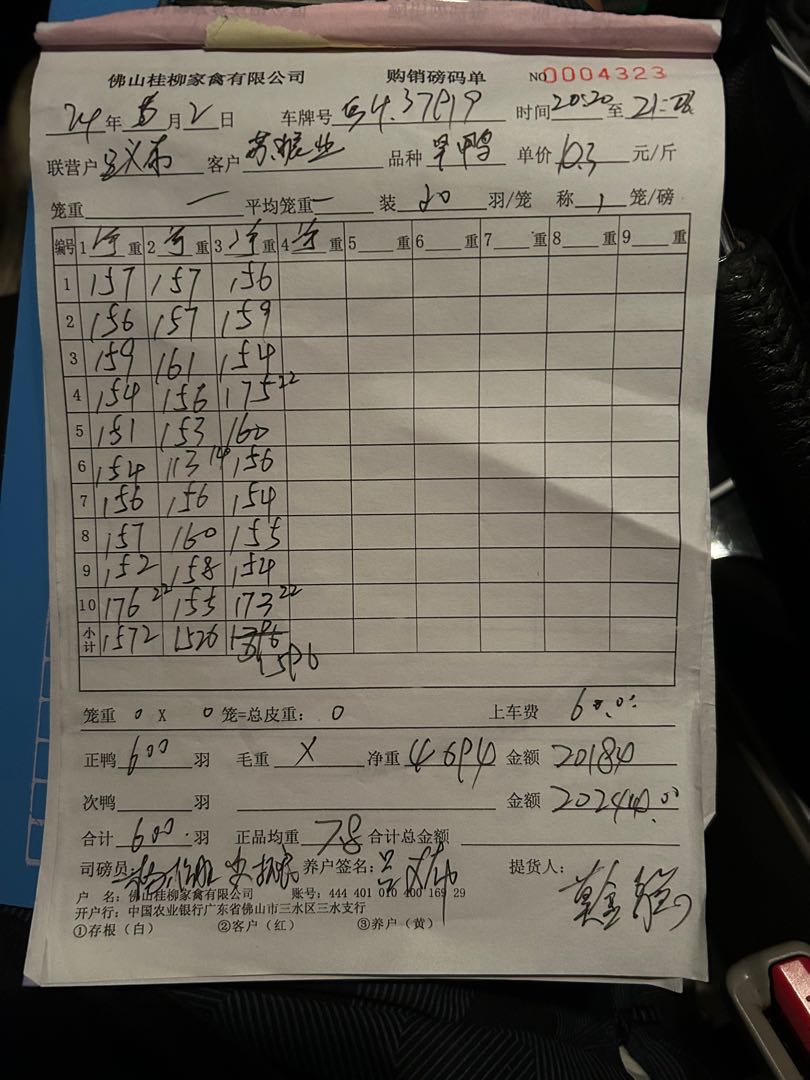 佛山桂柳家禽有限公司 购销磅码单 NO 0004323
24年 月2日 车牌号 时间20:20至
联营户 客户苏振业 品种 鸭 单价 元/斤
笼重 一 平均笼重 一 装20羽/笼 称1笼/磅
编号 1 重 2 重 3 重 4 重 5 重 6 重 7 重 8 重 9 重
1 157 157 156
2 156 157 159
3 159 161 154
4 154 156 175 22
5 151 153 160
6 154 113 14 156
7 156 156 154
8 157 160 155
9 152 158 154
10 176 22 155 173 22
小计 1572 1526
1596
笼重 0 X 0 笼=总皮重: 0 上车费 60.00
正鸭600羽 毛重 X 净重4694 金额20184
次鸭 羽 金额20244.00
合计600羽 正品均重7.8 合计总金额
司磅员: 养户签名: 提货人:
户 名: 佛山桂柳家禽有限公司 账号: 444 401 010 400 169 29
开户行: 中国农业银行广东省佛山市三水区三水支行
①存根(白) ②客户(红) ③养户(黄)